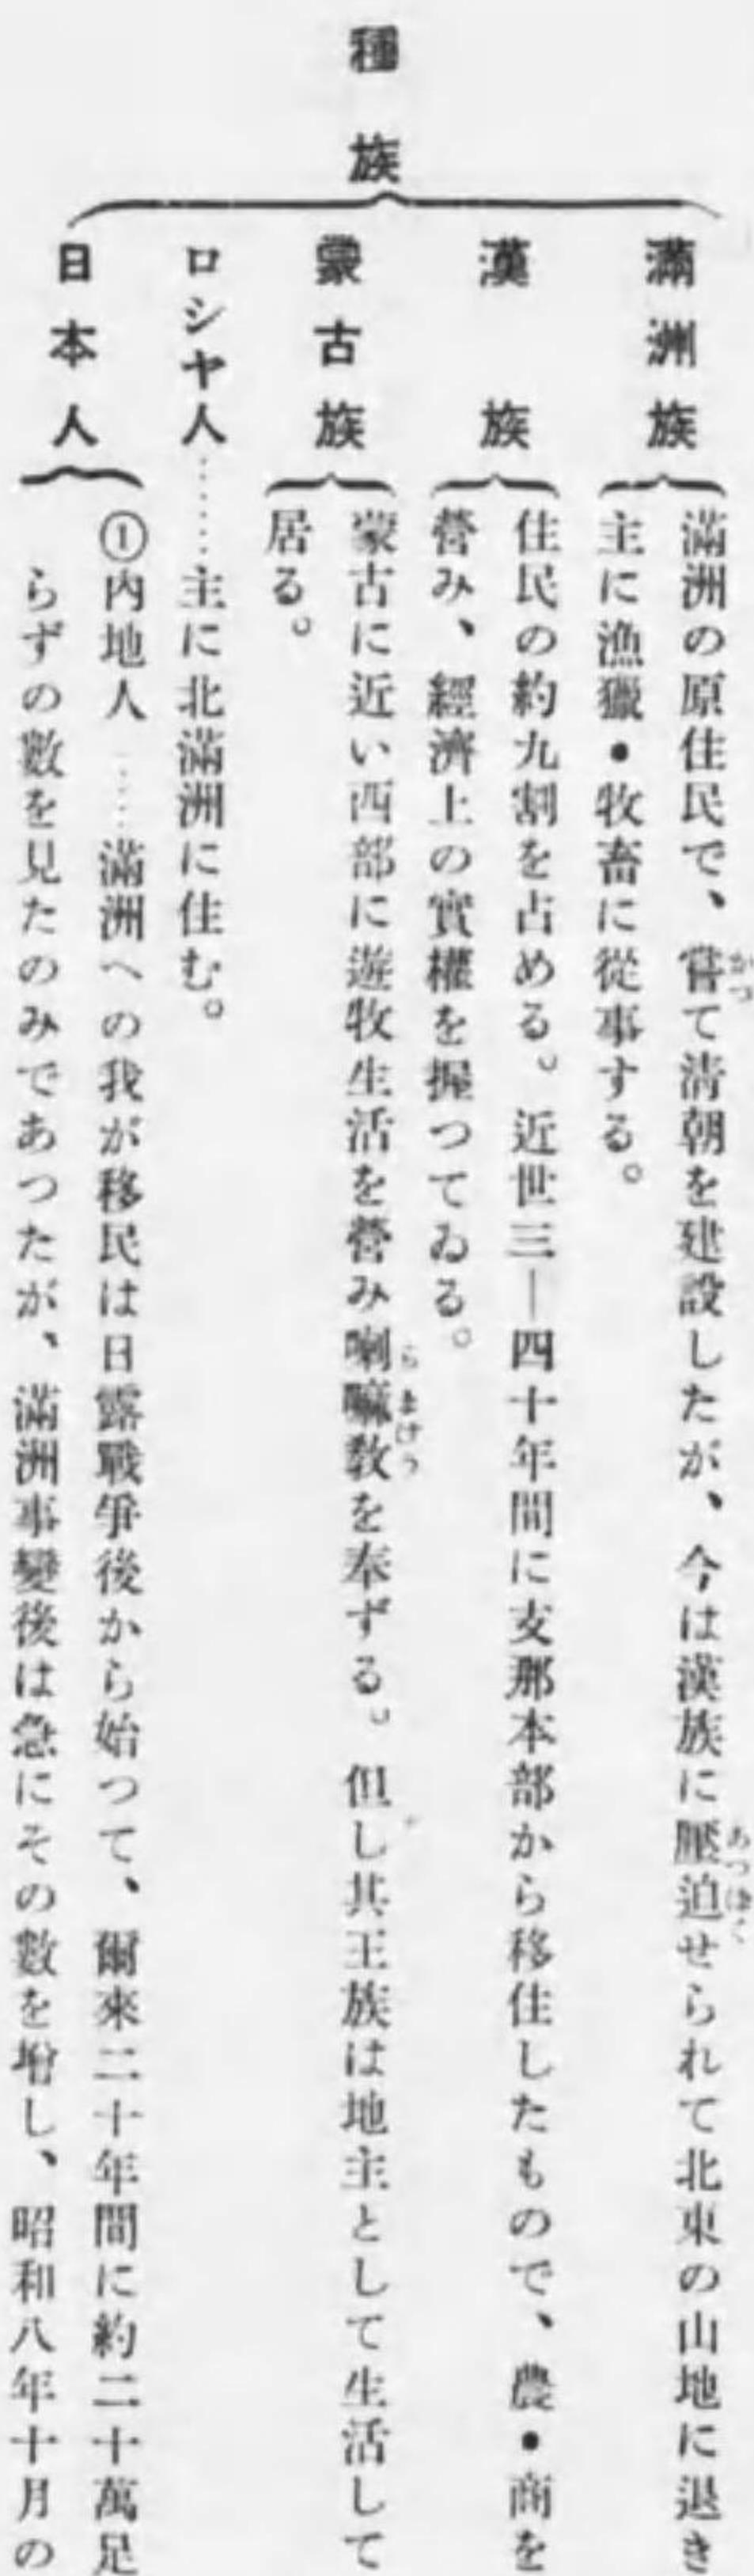 種族
滿洲族
滿洲の原住民で、嘗て淸朝を建設したが、今は漢族に壓迫せられて北東の山地に退き
主に漁獵・牧畜に從事する。
漢族
住民の約九割を占める。近世三―四十年間に支那本部から移住したもので、農・商を
營み、經濟上の實權を握つてゐる。
蒙古族
蒙古に近い西部に遊牧生活を營み喇嘛敎を奉ずる。但し其王族は地主として生活して
居る。
ロシヤ人……主に北滿洲に住む。
日本人
①內地人……滿洲への我が移民は日露戰爭後から始つて、爾來二十年間に約二十萬足
らずの數を見たのみであつたが、滿洲事變後は急にその數を增し、昭和八年十月の
かつ
あつぱく
らまけう